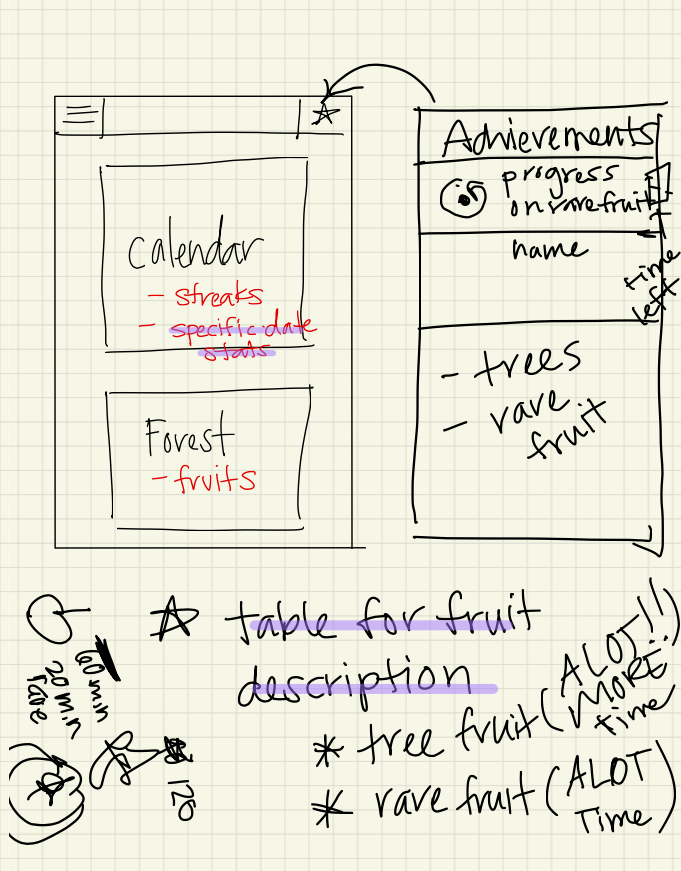 Calendar
- streaks
- specific date
stats
Forest
- fruits
Achievements
progress
on rare fruit
name
time
left
- trees
- rare
fruit
☆ table for fruit
description
* tree fruit (ALOT!! MORE time)
* rare fruit (ALOT Time)
60 min
20 min
rare
120